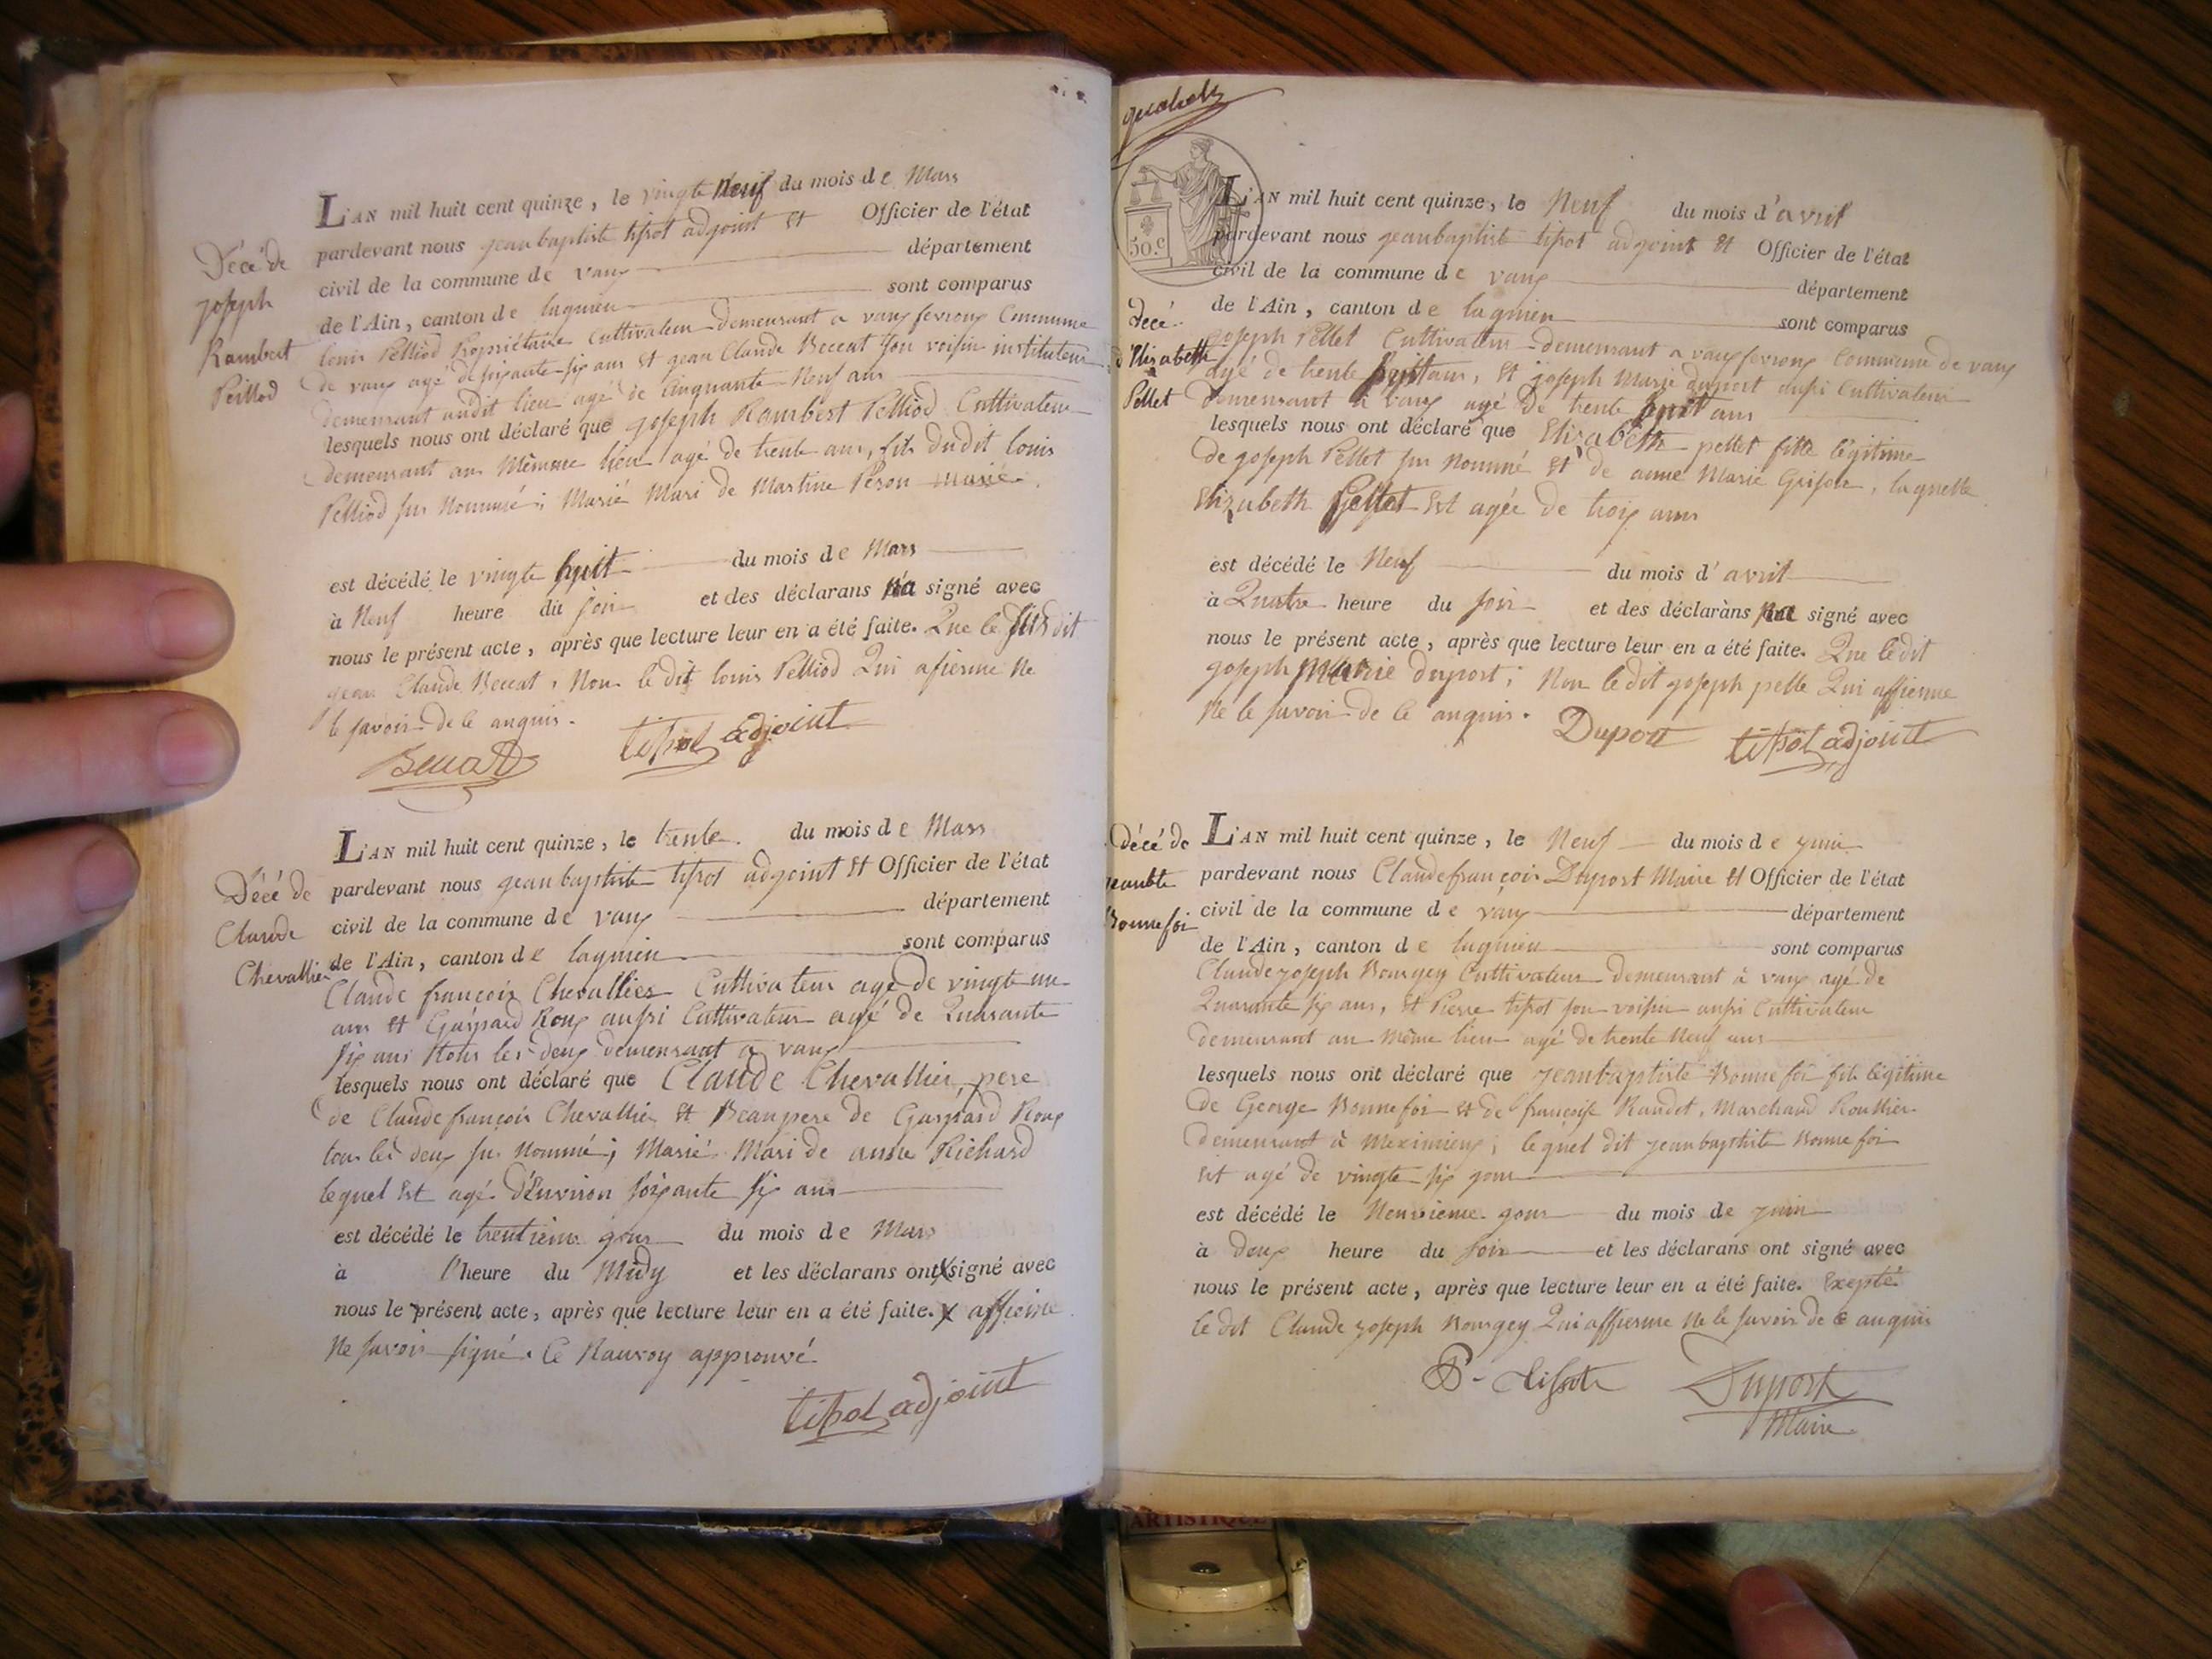 Décé de
joseph
Rambert
Peillod
L'AN mil huit cent quinze, le vingte neuf du mois de Mars
pardevant nous jeanbaptiste tissot adjoint et Officier de l'état
civil de la commune de vaux département
de l'Ain, canton de lagnieu sont comparus
louis Pelliod Propriétaire Cultivateur demeurant a vaux fevroux Commune
de vaux agé de soixante six ans et jean Claude Beccat son voisin instituteur
demeurant audit lieu agé de Cinquante Neuf ans
lesquels nous ont déclaré que joseph Rambert Pelliod Cultivateur
demeurant au Mêmme lieu agé de trente ans, fils dudit louis
Pelliod sus Nommé; Marié Mari de Martine Péron
est décédé le vingte huit du mois de Mars
à Neuf heure du soir et des déclarans n'a signé avec
nous le présent acte, après que lecture leur en a été faite. Que le susdit
jean Claude Beccat, Non le dit louis Pelliod Qui afierme Ne
le savoir de ce anquis.
Beccat tissot adjoint
Décé de
Claude
Chevallier
L'AN mil huit cent quinze, le trente du mois de Mars
pardevant nous jeanbaptiste tissot adjoint et Officier de l'état
civil de la commune de vaux département
de l'Ain, canton de lagnieu sont comparus
Claude françois Chevallier Cultivateur agé de vingte un
ans et Gaspard Roux aussi Cultivateur agé de Quarante
six ans tous les deux demeurant a vaux
lesquels nous ont déclaré que Claude Chevallier, pere
de Claude françois Chevallier et Beaupere de Gaspard Roux
tous les deux sus Nommé; Marié Mari de anne Richard
lequel est agé d'Environ soixante six ans
est décédé le trentieme jour du mois de Mars
à l'heure du Midy et les déclarans ont X signé avec
nous le présent acte, après que lecture leur en a été faite. X affierme
Ne savoir signé. Ce Ranvoy approuvé
tissot adjoint
50.c
Décé
d'Elizabeth
Pellet
L'AN mil huit cent quinze, le Neuf du mois d'avril
pardevant nous jeanbaptiste tissot adjoint et Officier de l'état
civil de la commune de vaux département
de l'Ain, canton de lagnieu sont comparus
joseph Pellet Cultivateur demeurant a vaux fevroux Commune de vaux
agé de trente huit ans, et joseph Marie duport aussi Cultivateur
demeurant à vaux agé de trente huit ans
lesquels nous ont déclaré que Elizabeth pellet fille légitime
de joseph Pellet sus Nommé et de anne Marie Grisole, laquelle
Elizabeth Pellet est agée de trois ans
est décédé le Neuf du mois d'avril
à Quatre heure du soir et des déclarans n'a signé avec
nous le présent acte, après que lecture leur en a été faite. Que le dit
joseph Marie duport; Non le dit joseph pelle Qui affierme
Ne le savoir de ce anquis.
Duport tissot adjoint
Décé de
jeanbte
Bonnefoi
L'AN mil huit cent quinze, le Neuf du mois de juin
pardevant nous Claudefrançois Duport Maire et Officier de l'état
civil de la commune de vaux département
de l'Ain, canton de lagnieu sont comparus
Claude joseph Bourgey Cultivateur demeurant à vaux agé de
Quarante six ans, et Pierre tissot son voisin aussi Cultivateur
demeurant au même lieu agé de trente Neuf ans
lesquels nous ont déclaré que jeanbaptiste Bonnefoi fils légitime
de George Bonnefoi et de françoise Raudet, Marchand Roullier
demeurant à Meximieux; lequel dit jeanbaptiste Bonnefoi
est agé de vingte six jour
est décédé le Neuvieme jour du mois de juin
à deux heure du soir et les déclarans ont signé avec
nous le présent acte, après que lecture leur en a été faite. Excepté
le dit Claude joseph Bourgey Qui affierme Ne le savoir de ce anquis
P. tissot Duport
Maire
ARTISTIQUE